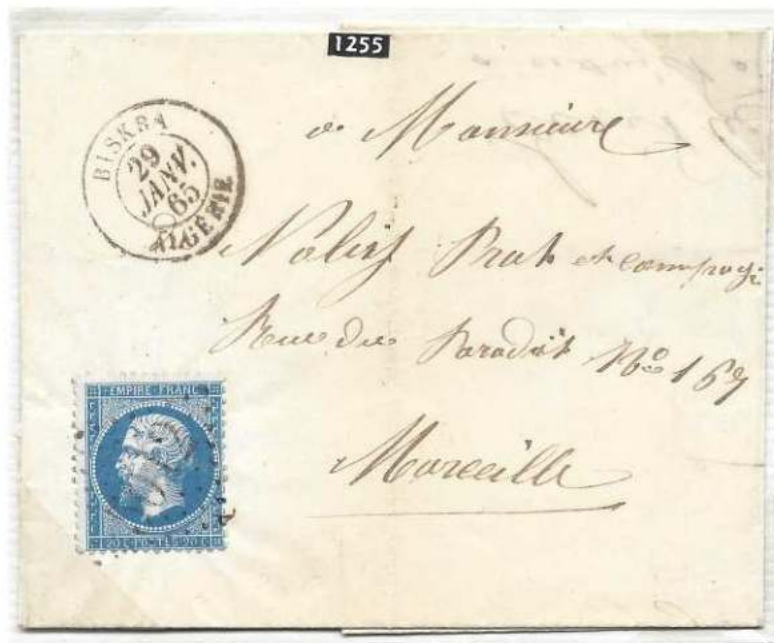 1255
BISKRA
29
JANV.
65
ALGÉRIE
a Monsieure
Prat et compagi
Rue du Paradit No 167
Marceille
EMPIRE FRANC
20 C POSTES 20 C